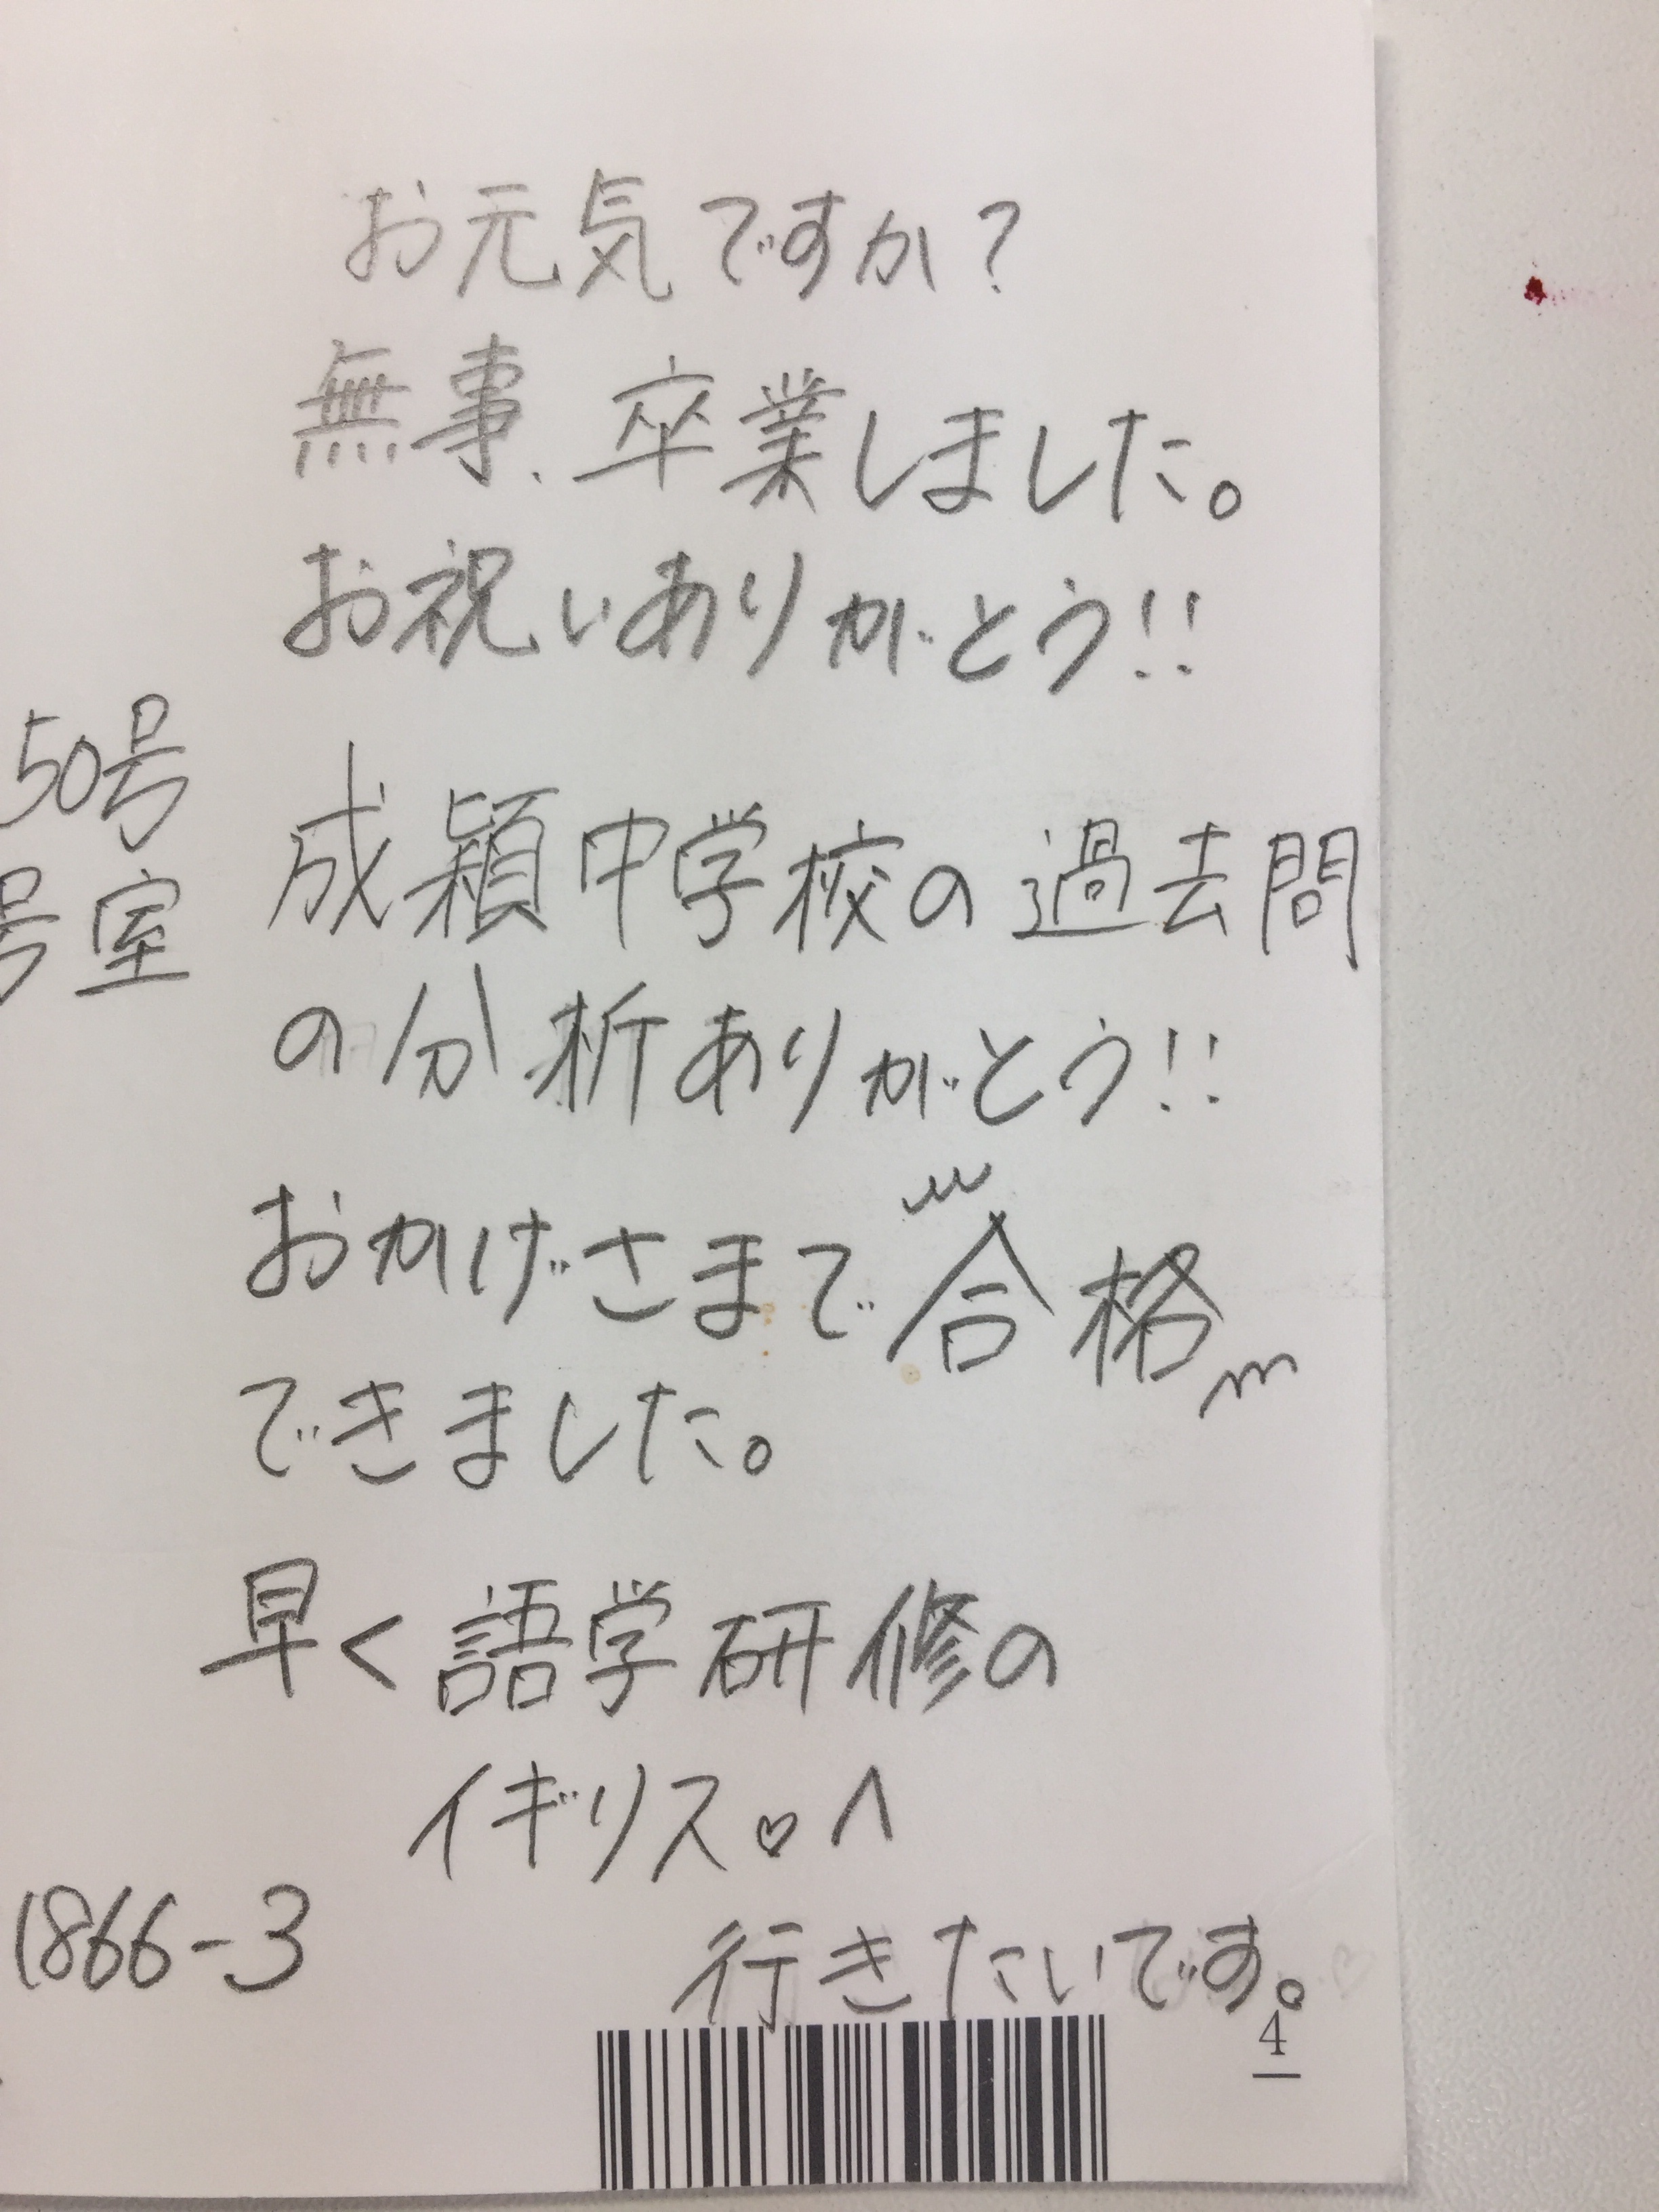 お元気ですか?
無事、卒業しました。
お祝いありがとう!!
50号
号室
成穎中学校の過去問
の分析ありがとう!!
おかげさまで合格
できました。
早く語学研修の
イギリス♡へ
行きたいです。
1866-3
4